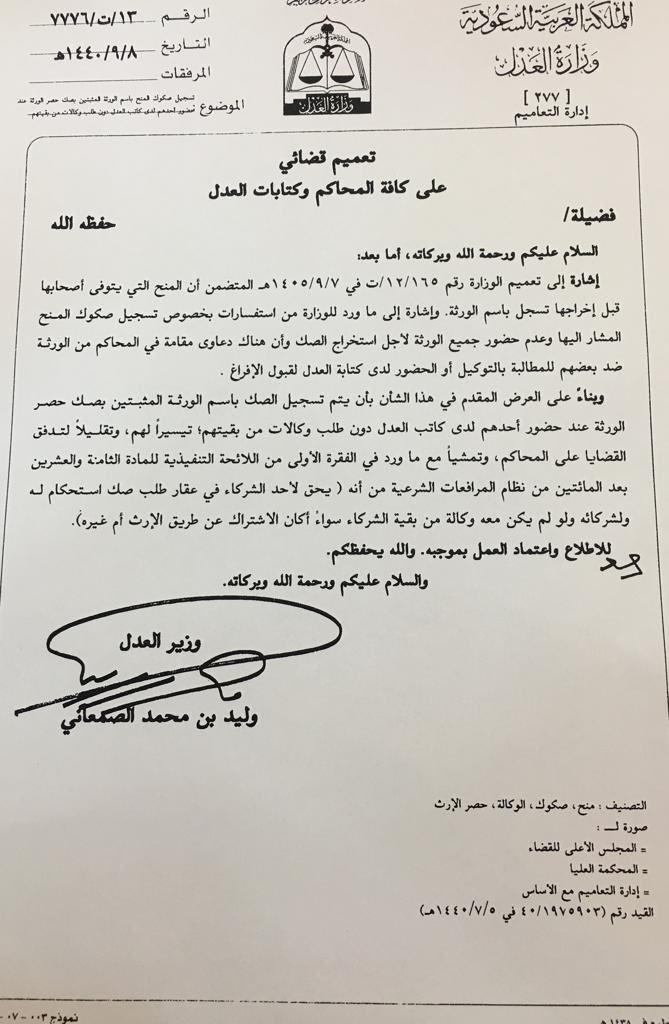 المملكة العربية السعودية
وزارة العدل
[ ٢٧٧ ]
إدارة التعاميم
وزارة العدل
الرقم ١٣/ت/٧٧٧٦
التاريخ ١٤٤٠/٩/٨هـ
المرفقات
الموضوع تسجيل صكوك المنح باسم الورثة المثبتين بصك حصر الورثة عند
حضور أحدهم لدى كاتب العدل دون طلب وكالات من بقيتهم
تعميم قضائي
على كافة المحاكم وكتابات العدل
فضيلة/ حفظه الله
السلام عليكم ورحمة الله وبركاته، أما بعد:
إشارة إلى تعميم الوزارة رقم ١٢/١٦٥/ت في ١٤٠٥/٩/٧هـ المتضمن أن المنح التي يتوفى أصحابها
قبل إخراجها تسجل باسم الورثة. وإشارة إلى ما ورد للوزارة من استفسارات بخصوص تسجيل صكوك المنح
المشار اليها وعدم حضور جميع الورثة لأجل استخراج الصك وأن هناك دعاوى مقامة في المحاكم من الورثة
ضد بعضهم للمطالبة بالتوكيل أو الحضور لدى كتابة العدل لقبول الإفراغ .
وبناءً على العرض المقدم في هذا الشأن بأن يتم تسجيل الصك باسم الورثة المثبتين بصك حصر
الورثة عند حضور أحدهم لدى كاتب العدل دون طلب وكالات من بقيتهم؛ تيسيراً لهم، وتقليلاً لتدفق
القضايا على المحاكم، وتمشياً مع ما ورد في الفقرة الأولى من اللائحة التنفيذية للمادة الثامنة والعشرين
بعد المائتين من نظام المرافعات الشرعية من أنه ( يحق لأحد الشركاء في عقار طلب صك استحكام له
ولشركائه ولو لم يكن معه وكالة من بقية الشركاء سواءً أكان الاشتراك عن طريق الإرث أم غيره).
للاطلاع واعتماد العمل بموجبه. والله يحفظكم.
والسلام عليكم ورحمة الله وبركاته.
وزير العدل
وليد بن محمد الصمعاني
التصنيف : منح، صكوك، الوكالة، حصر الإرث
صورة لـــ :
= المجلس الأعلى للقضاء
= المحكمة العليا
= إدارة التعاميم مع الأساس
القيد رقم (٤٠/١٩٧٥٩٠٣ في ١٤٤٠/٧/٥هـ)
نموذج ٠٠٣ - ٠٧